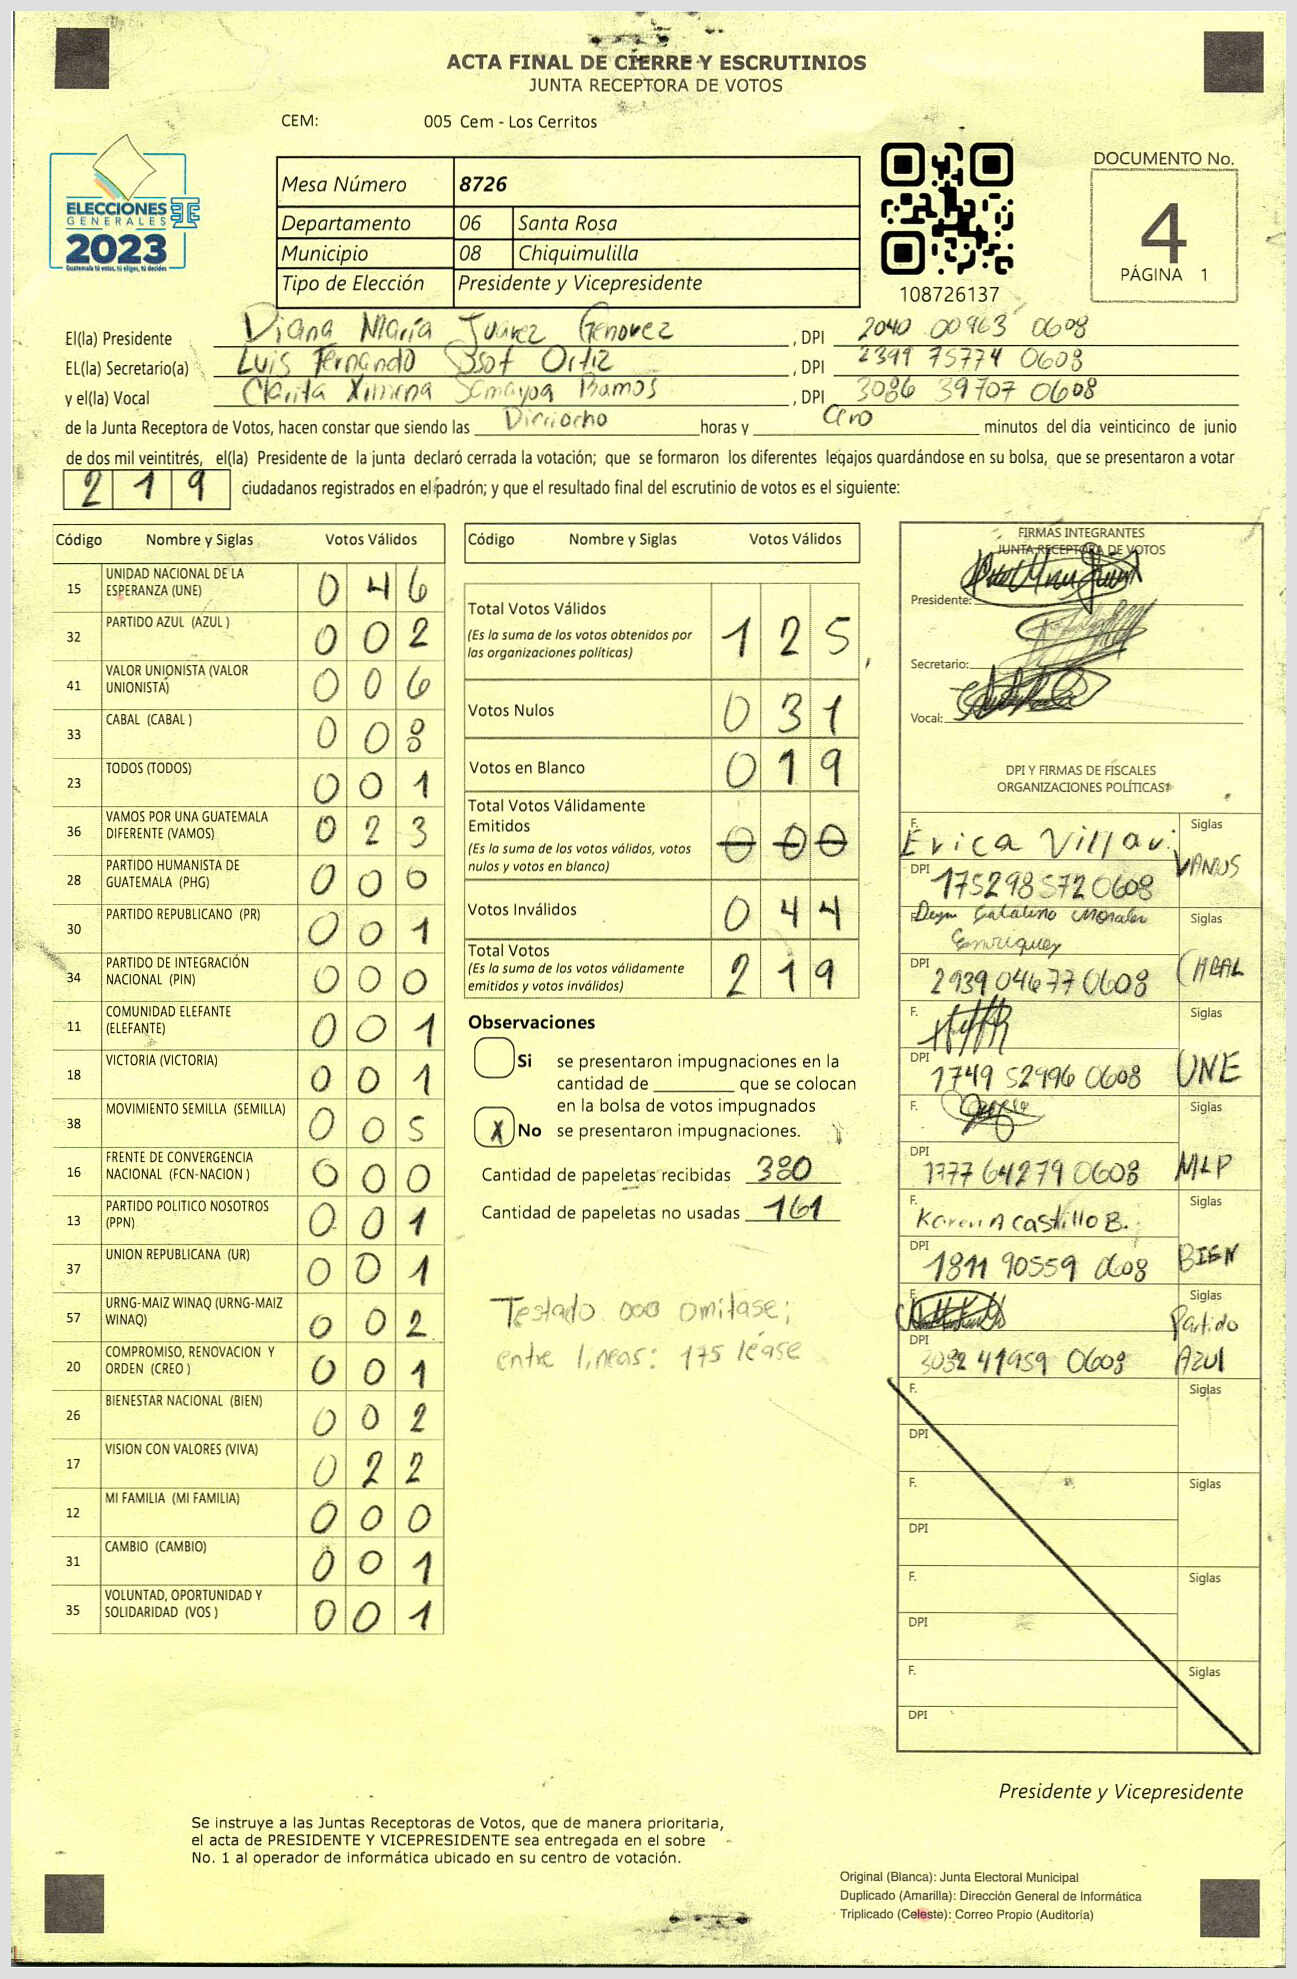 ACTA FINAL DE CIERRE Y ESCRUTINIOS
JUNTA RECEPTORA DE VOTOS
CEM: 005 Cem - Los Cerritos
ELECCIONES
GENERALES
2023
Guatemala tú votas, tú eliges, tú decides
Mesa Número 8726
Departamento 06 Santa Rosa
Municipio 08 Chiquimulilla
Tipo de Elección Presidente y Vicepresidente
108726137
DOCUMENTO No.
4
PÁGINA 1
El(la) Presidente Diana María Juárez Genovez, DPI 2040 00963 0608
EL(la) Secretario(a) Luis Fernando Ortiz, DPI 2399 75774 0608
y el(la) Vocal Clarita Ximena Samayoa Ramos, DPI 3086 39707 0608
de la Junta Receptora de Votos, hacen constar que siendo las Dieciocho horas y Cero minutos del día veinticinco de junio
de dos mil veintitrés, el(la) Presidente de la junta declaró cerrada la votación; que se formaron los diferentes legajos guardándose en su bolsa, que se presentaron a votar
219 ciudadanos registrados en el padrón; y que el resultado final del escrutinio de votos es el siguiente:
Código Nombre y Siglas Votos Válidos
15 UNIDAD NACIONAL DE LA
ESPERANZA (UNE) 046
32 PARTIDO AZUL (AZUL ) 002
41 VALOR UNIONISTA (VALOR
UNIONISTA) 006
33 CABAL (CABAL ) 008
23 TODOS (TODOS) 001
36 VAMOS POR UNA GUATEMALA
DIFERENTE (VAMOS) 023
28 PARTIDO HUMANISTA DE
GUATEMALA (PHG) 000
30 PARTIDO REPUBLICANO (PR) 001
34 PARTIDO DE INTEGRACIÓN
NACIONAL (PIN) 000
11 COMUNIDAD ELEFANTE
(ELEFANTE) 001
18 VICTORIA (VICTORIA) 001
38 MOVIMIENTO SEMILLA (SEMILLA) 005
16 FRENTE DE CONVERGENCIA
NACIONAL (FCN-NACION ) 000
13 PARTIDO POLITICO NOSOTROS
(PPN) 001
37 UNION REPUBLICANA (UR) 001
57 URNG-MAIZ WINAQ (URNG-MAIZ
WINAQ) 002
20 COMPROMISO, RENOVACION Y
ORDEN (CREO ) 001
26 BIENESTAR NACIONAL (BIEN) 002
17 VISION CON VALORES (VIVA) 022
12 MI FAMILIA (MI FAMILIA) 000
31 CAMBIO (CAMBIO) 001
35 VOLUNTAD, OPORTUNIDAD Y
SOLIDARIDAD (VOS ) 001
Código Nombre y Siglas Votos Válidos
Total Votos Válidos 125
(Es la suma de los votos obtenidos por
las organizaciones políticas)
Votos Nulos 031
Votos en Blanco 019
Total Votos Válidamente
Emitidos 000
(Es la suma de los votos válidos, votos
nulos y votos en blanco)
Votos Inválidos 044
Total Votos 219
(Es la suma de los votos válidamente
emitidos y votos inválidos)
Observaciones
Si se presentaron impugnaciones en la
cantidad de ________ que se colocan
en la bolsa de votos impugnados
X No se presentaron impugnaciones.
Cantidad de papeletas recibidas 380
Cantidad de papeletas no usadas 161
Testado 000 omitase;
entre lineas: 175 léase
FIRMAS INTEGRANTES
JUNTA RECEPTORA DE VOTOS
Presidente:
Secretario:
Vocal:
DPI Y FIRMAS DE FISCALES
ORGANIZACIONES POLÍTICAS
F. Erica Villavi Siglas
DPI 175298572 0608 VAMOS
F. Catalino Morales Siglas
Enriquez
DPI 2939 04677 0608 CABAL
F. Siglas
DPI 1749 52996 0608 UNE
F. Siglas
DPI 1777 64279 0608 MLP
F. Karen A Castillo B. Siglas
DPI 1811 90559 0608 BIEN
F. Siglas
Partido
DPI 3082 41959 0608 AZUL
F. Siglas
DPI
F. Siglas
DPI
F. Siglas
DPI
F. Siglas
DPI
Presidente y Vicepresidente
Se instruye a las Juntas Receptoras de Votos, que de manera prioritaria,
el acta de PRESIDENTE Y VICEPRESIDENTE sea entregada en el sobre
No. 1 al operador de informática ubicado en su centro de votación.
Original (Blanca): Junta Electoral Municipal
Duplicado (Amarilla): Dirección General de Informática
Triplicado (Celeste): Correo Propio (Auditoría)